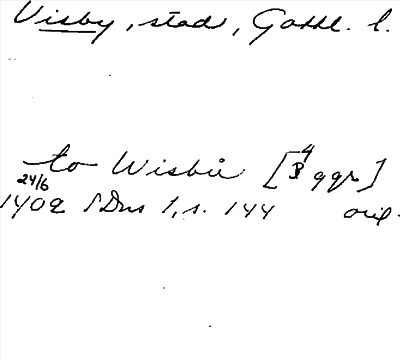 Visby, stad, Gotl. l.
to Wisbü [4 ggr]
24/6
1402 SDns 1, s. 144 orig.